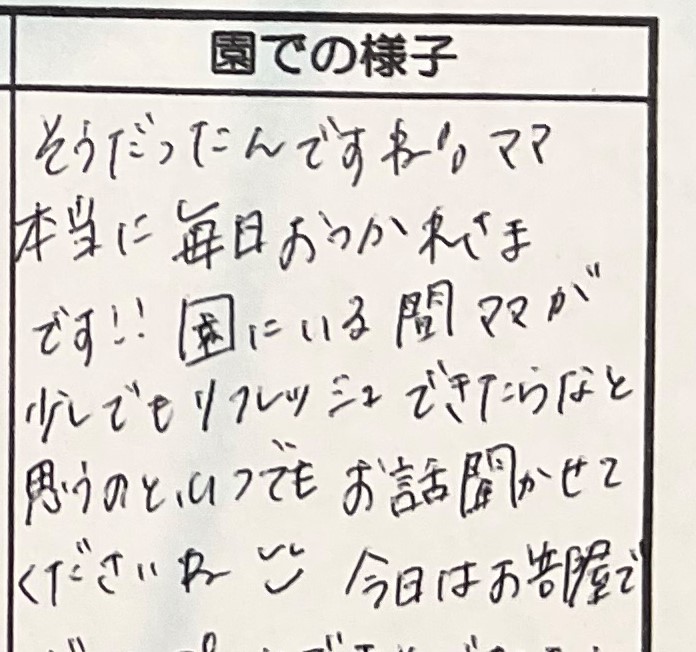 園での様子
そうだったんですね!! ママ
本当に毎日おつかれさま
です!! 園にいる間ママが
少しでもリフレッシュできたらなと
思うのと、いつでもお話聞かせて
くださいね 今日はお部屋で